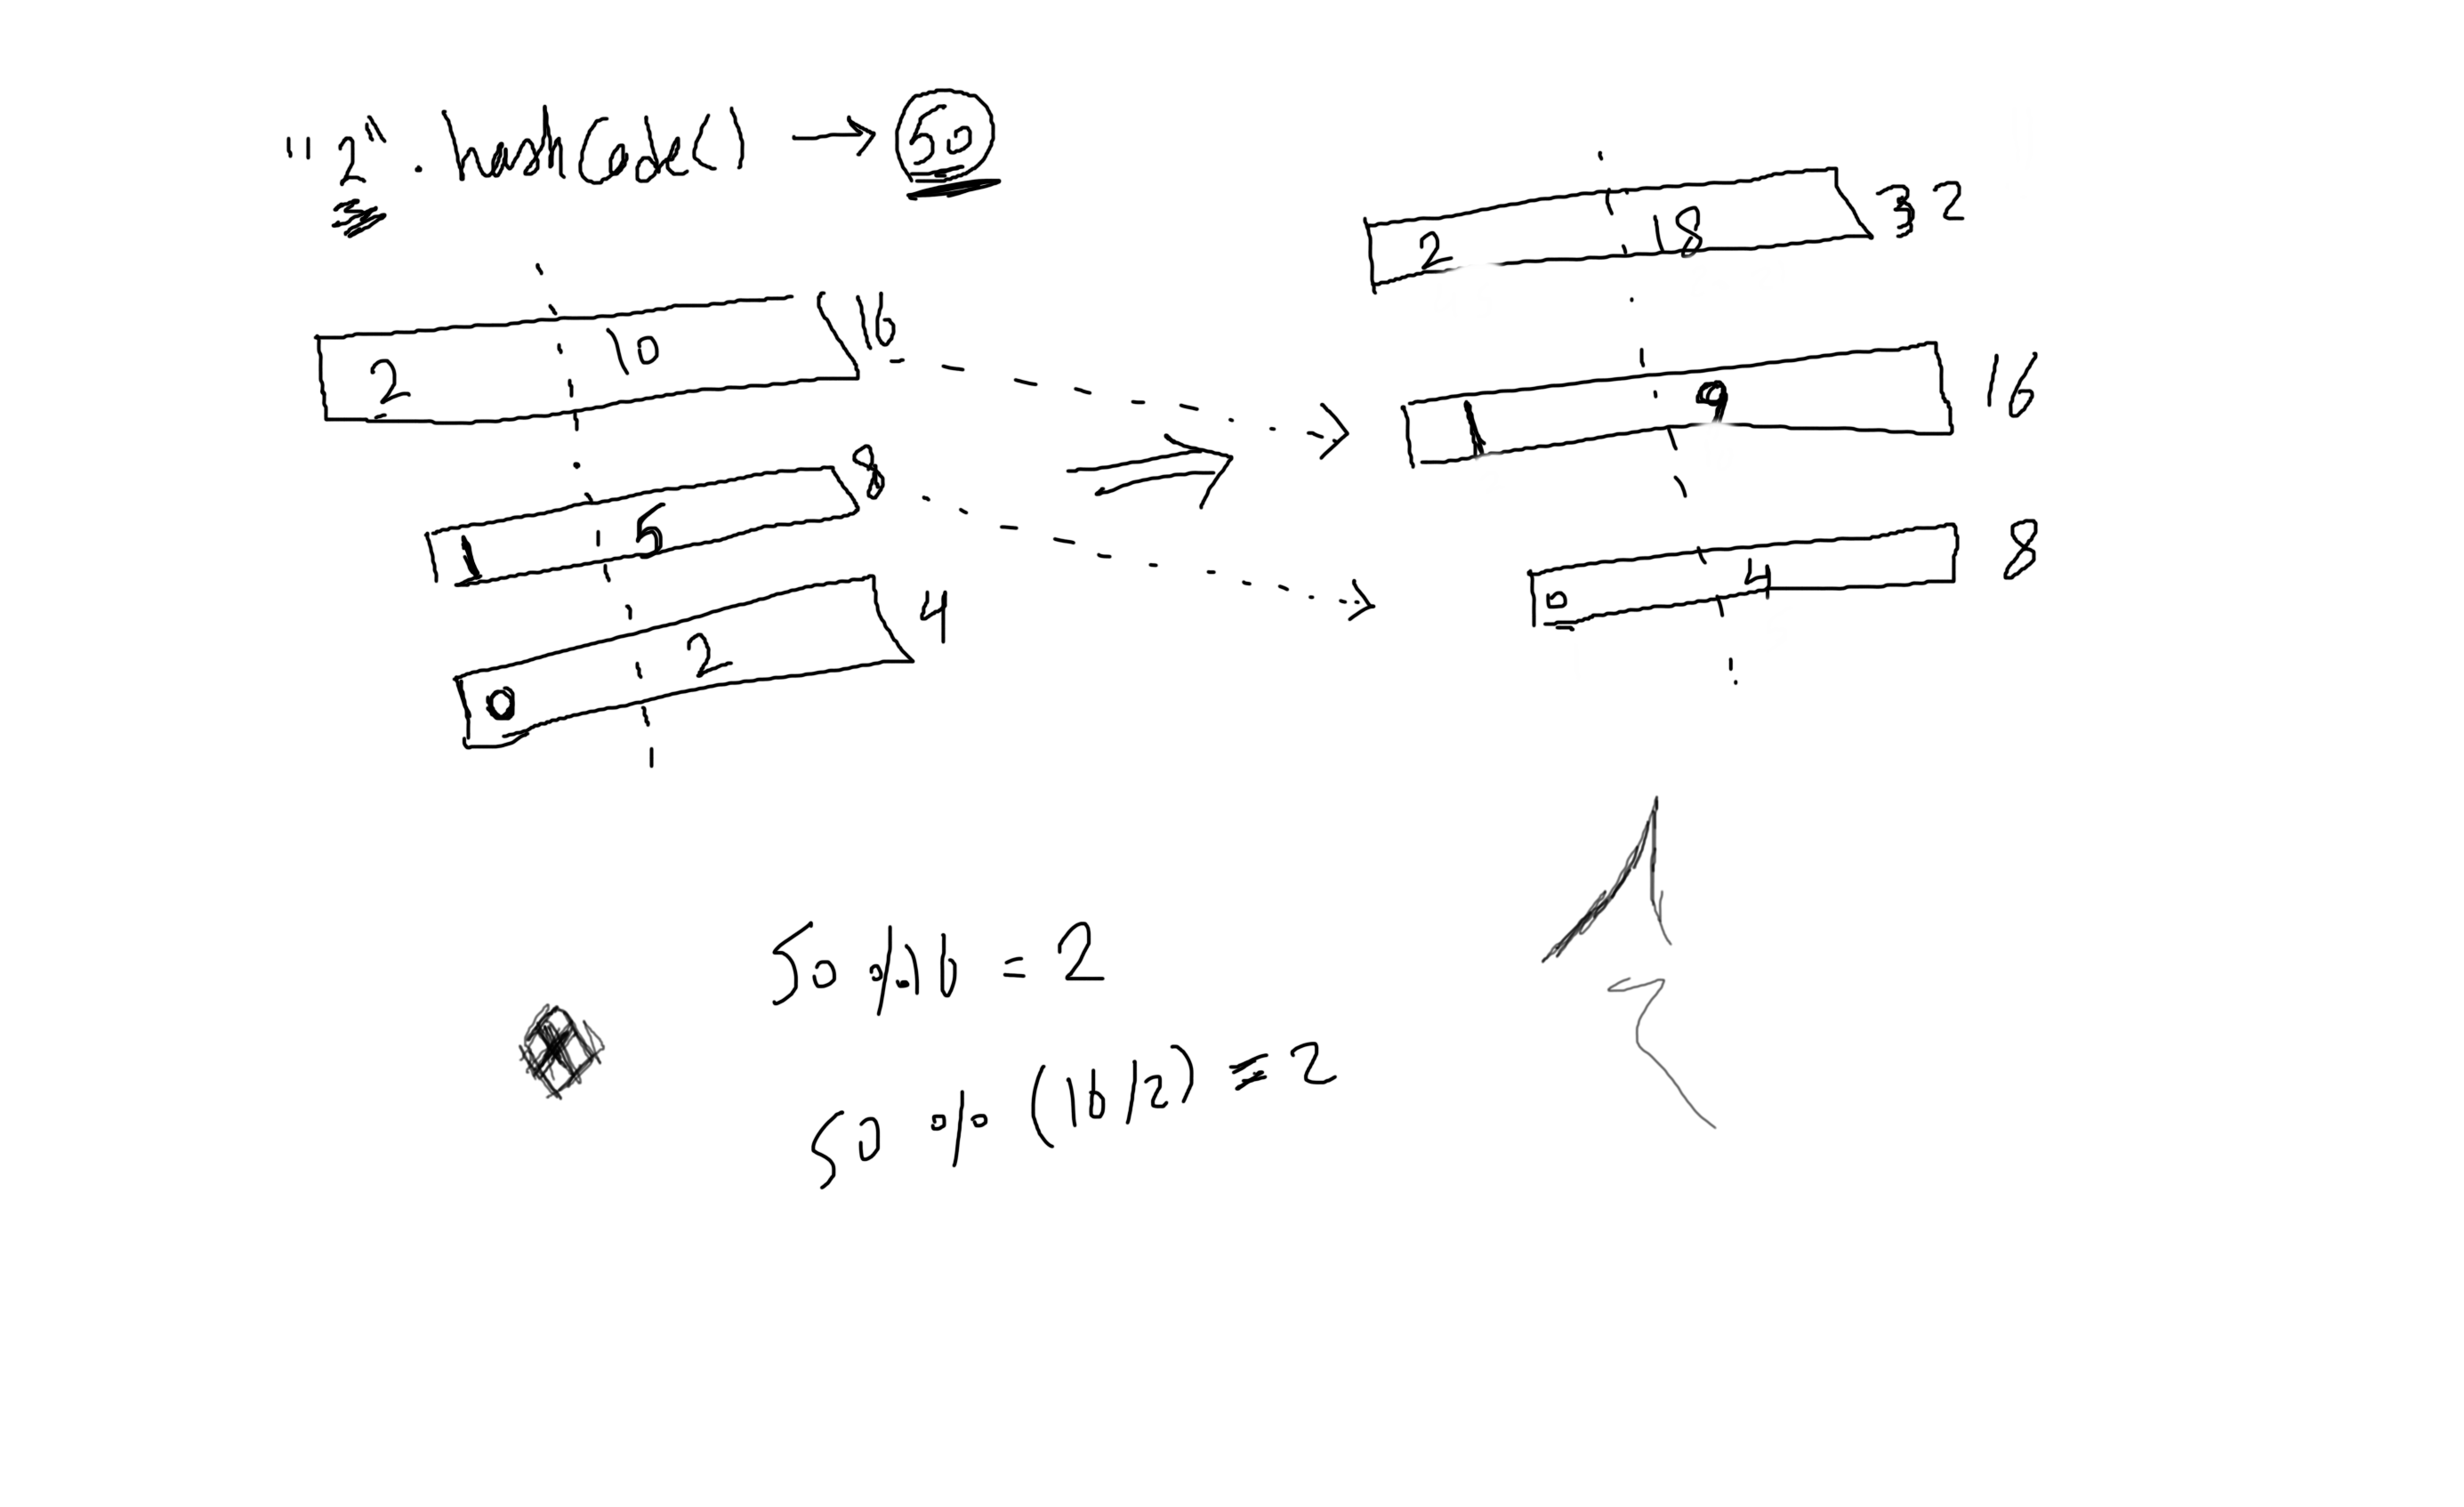 "2".hashCode() → 50
2 10 16
1 5 8
0 2 4
2 18 32
1 9 16
0 4 8
50 % 16 = 2
50 % (16/2) = 2